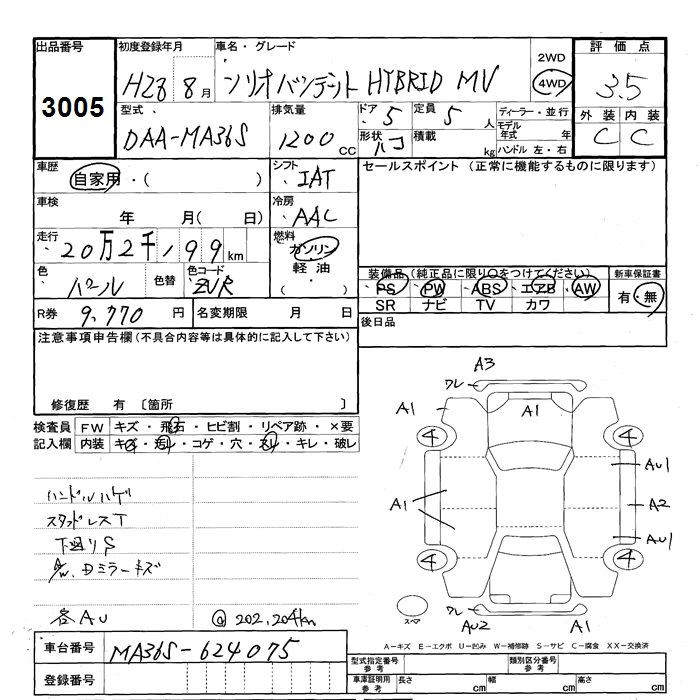 出品番号 初度登録年月 車名・グレード 2WD 評価点
3005 H28 8月 ソリオバンデット HYBRID MV 4WD 3.5
型式 排気量 ドア 5 定員 5人 ディーラー・並行 外装 内装
DAA-MA36S 1200cc 形状 ハコ 積載 kg モデル年式 年 C C
ハンドル 左・右
車歴 シフト セールスポイント (正常に機能するものに限ります)
自家用・( ) IAT
車検 冷房
年 月( 日) AAC
走行 燃料
20万2千199km ガソリン
軽油
( ・ )
色 色替 色コード 装備品(純正品に限り○をつけてください) 新車保証書
パール ZVR PS PW ABS エアB AW 有・無
SR ナビ TV カワ
R券 9,770円 名変期限 月 日 後日品
注意事項申告欄(不具合内容等は具体的に記入して下さい)
修復歴 有 〔箇所 〕
検査員 FW キズ・飛石・ヒビ割・リペア跡・×要
記入欄 内装 キズ・汚レ・コゲ・穴・スレ・キレ・破レ
ハンドルハゲ
スタッドレスT
下廻りS
A/W、Dミラーキズ
各AU @ 202,204km
A3
ワレ
A1 A1
4 4
AU1
A1 A2
AU1
4 4
スペア ワレ
AU2 A1
車台番号 MA36S-624075
A-キズ E-エクボ U-凹み W-補修跡 S-サビ C-腐食 XX-交換済
登録番号
型式指定番号 参考 類別区分番号 参考
車庫証明用 参考 長さ cm 幅 cm 高さ cm